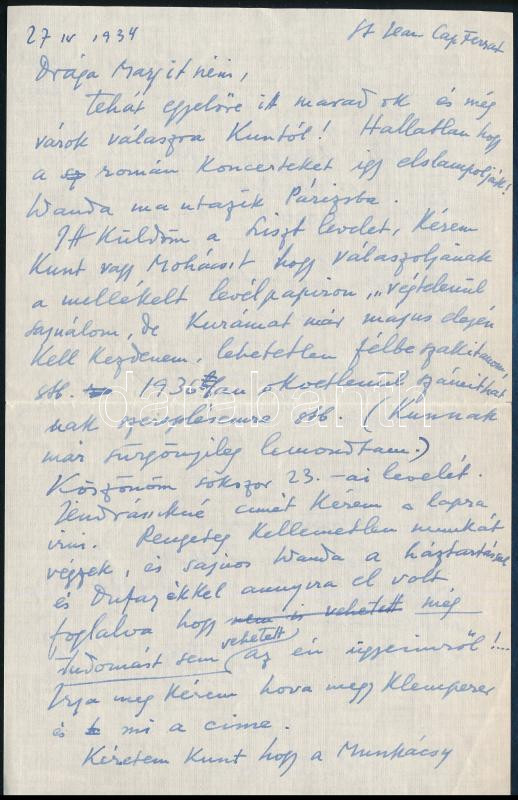 27 IV 1934 St Jean Cap Ferrat
Drága Margit néni,
Tehát egyelőre itt maradok és még
várok válaszra Kuntól! Hallatlan hogy
a román koncerteket így elslampolják!
Wanda ma utazik Párizsba.
Itt küldöm a Liszt levelet, kérem
Kunt vagy Mohácsit hogy válaszoljanak
a mellékelt levélpapiron, "végtelenül
sajnálom, de kurámat már majus elején
kell kezdenem, lehetetlen félbeszakitanom,
stb. 1936 ban okvetlenül számithat
nak szereplésemre stb. (Kunnak
már sürgönyileg lemondtam.)
Köszönöm sokszor 23.-ai levelét.
Jendrassikné cimét kérem a lapra
irni. Rengeteg kellemetlen munkát
végzek, és sajnos Wanda a háztartással
és Dufayékkel annyira el volt
foglalva hogy nem is vehetett még
tudomást sem vehetett az én ügyeimről!...
Irja meg kérem hova megy Klemperer
és mi a cime.
Kéretem Kunt hogy a Munkácsy
darabanth